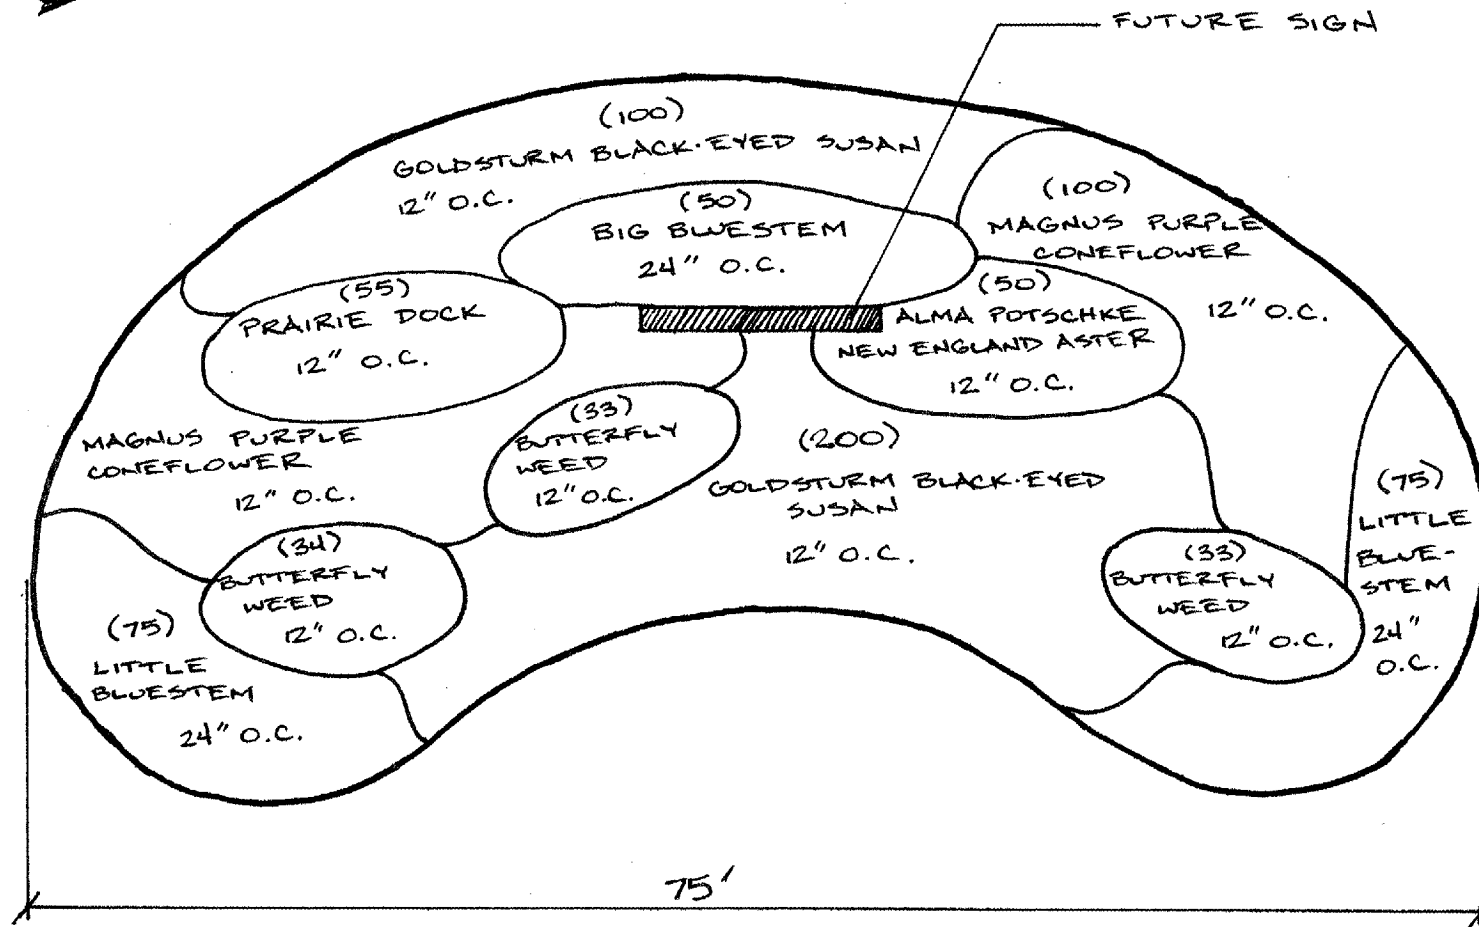 FUTURE SIGN
(100)
GOLDSTURM BLACK-EYED SUSAN
12" O.C.
(50)
BIG BLUESTEM
24" O.C.
(100)
MAGNUS PURPLE
CONEFLOWER
12" O.C.
(55)
PRAIRIE DOCK
12" O.C.
(50)
ALMA POTSCHKE
NEW ENGLAND ASTER
12" O.C.
MAGNUS PURPLE
CONEFLOWER
12" O.C.
(33)
BUTTERFLY
WEED
12" O.C.
(200)
GOLDSTURM BLACK-EYED
SUSAN
12" O.C.
(75)
LITTLE
BLUE-
STEM
24"
O.C.
(34)
BUTTERFLY
WEED
12" O.C.
(33)
BUTTERFLY
WEED
12" O.C.
(75)
LITTLE
BLUESTEM
24" O.C.
75'